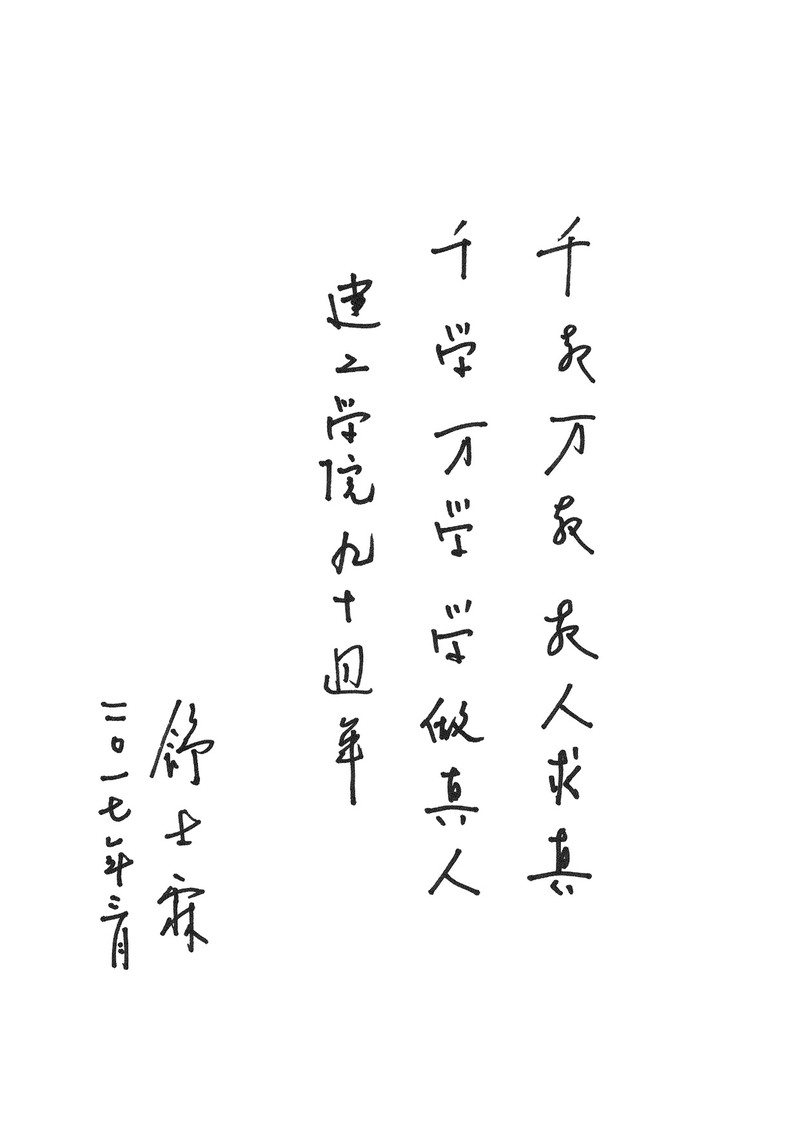 千教万教教人求真
千学万学学做真人
建工学院九十週年
舒士霖
二〇一七年三月